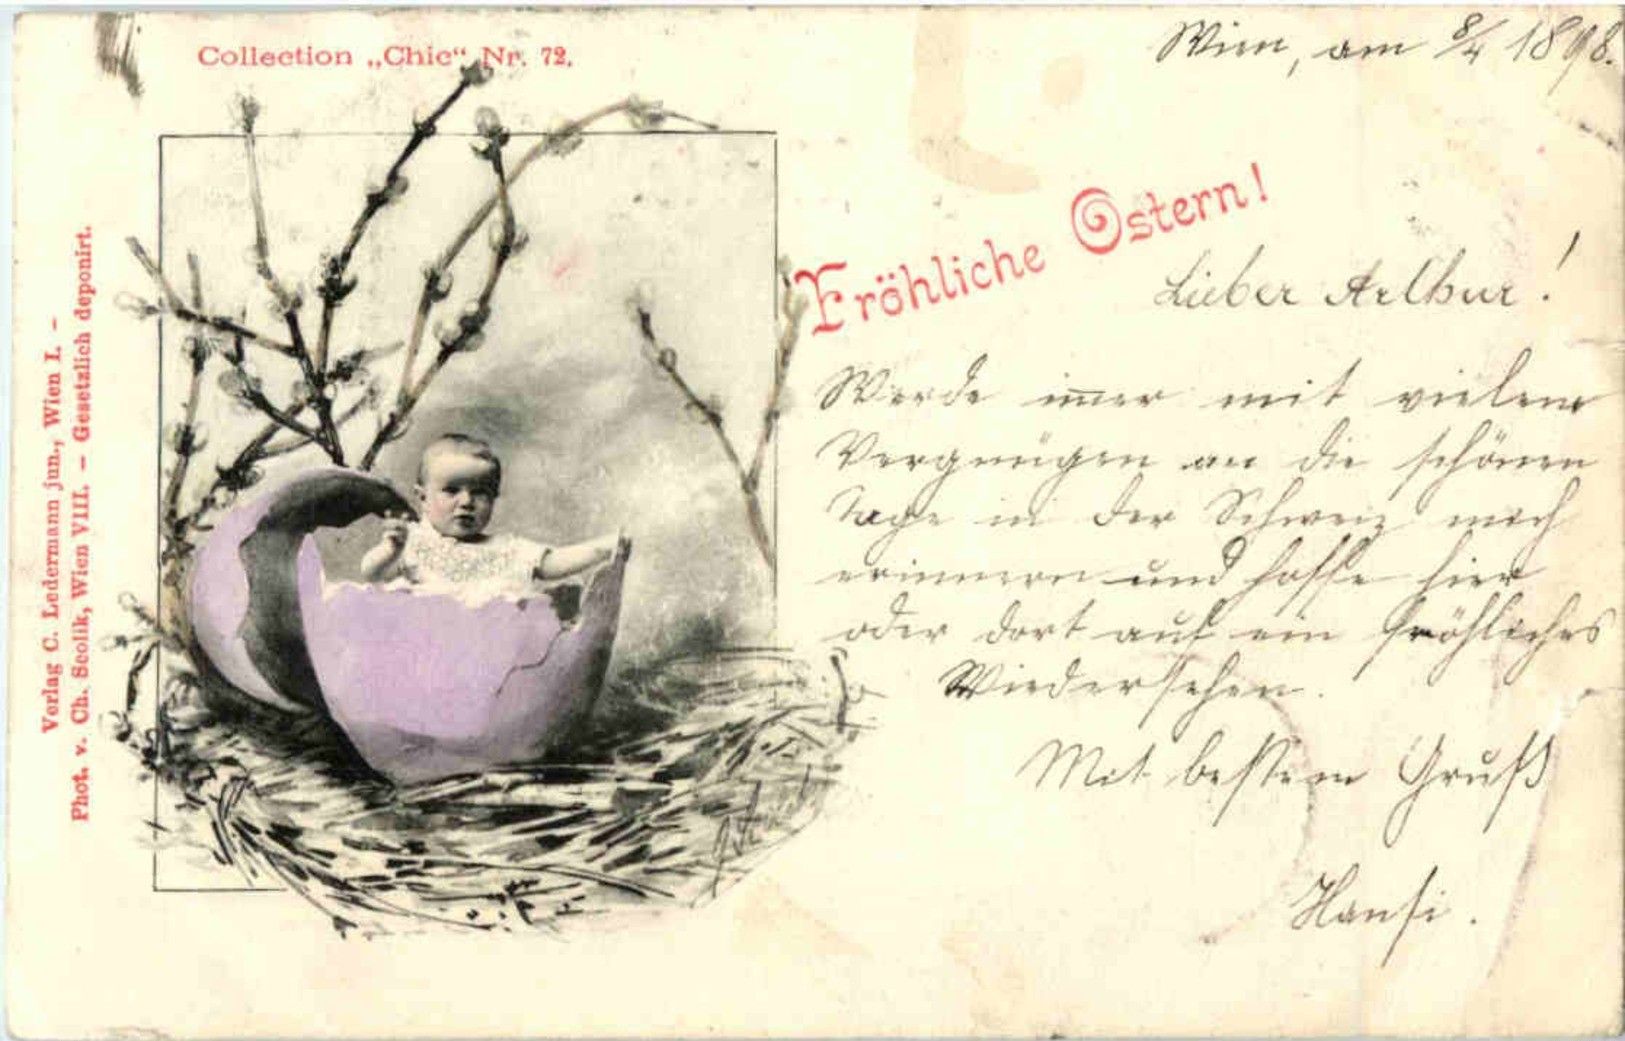 Collection „Chic“ Nr. 72.
Wien, am 8/4 1898.
Fröhliche Ostern!
Lieber Arthur!
Werde im̅er mit vielem
Vergnügen an die schönen
Tage in der Schweiz mich
erinnern und hoffe hier
oder dort auf ein fröhliches
Wiedersehen.
Mit bestem Gruß
Hansi.
Verlag C. Ledermann jun., Wien I. –
Phot. v. Ch. Scolik, Wien VIII. – Gesetzlich deponirt.